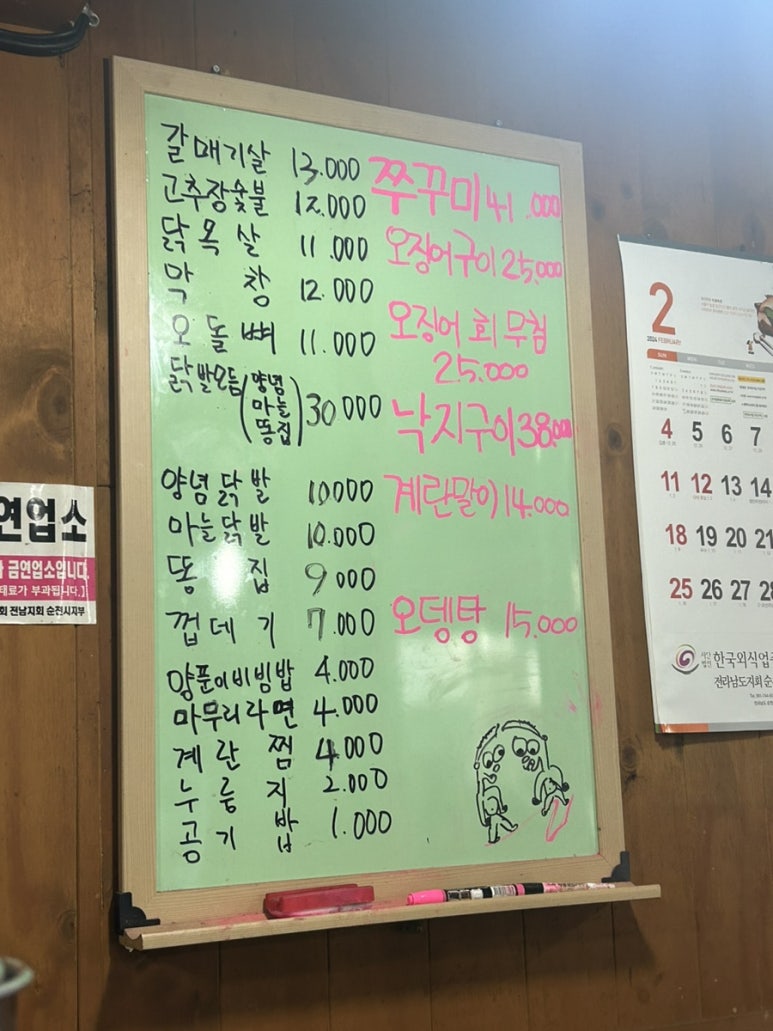 갈매기살 13.000
고추장숯불 12.000
닭목살 11.000
막창 12.000
오돌뼈 11.000
닭발모듬 (양념 마늘 똥집) 30000
양념닭발 10000
마늘닭발 10.000
똥집 9000
껍데기 7.000
양푼이비빔밥 4.000
마무리라면 4.000
계란찜 4000
누룽지 2.000
공기밥 1.000
쭈꾸미 41.000
오징어구이 25,000
오징어 회 무침
25.000
낙지구이 38.000
계란말이 14.000
오뎅탕 15.000
연업소
금연업소입니다.
태료가 부과됩니다.】
회 전남지회 순천시지부
2
2024 FEBRUARY
SUN MON TUE WED
4 5 6 7
11 12 13 14
18 19 20 21
25 26 27 28
사단법인 한국외식업
전라남도지회 순